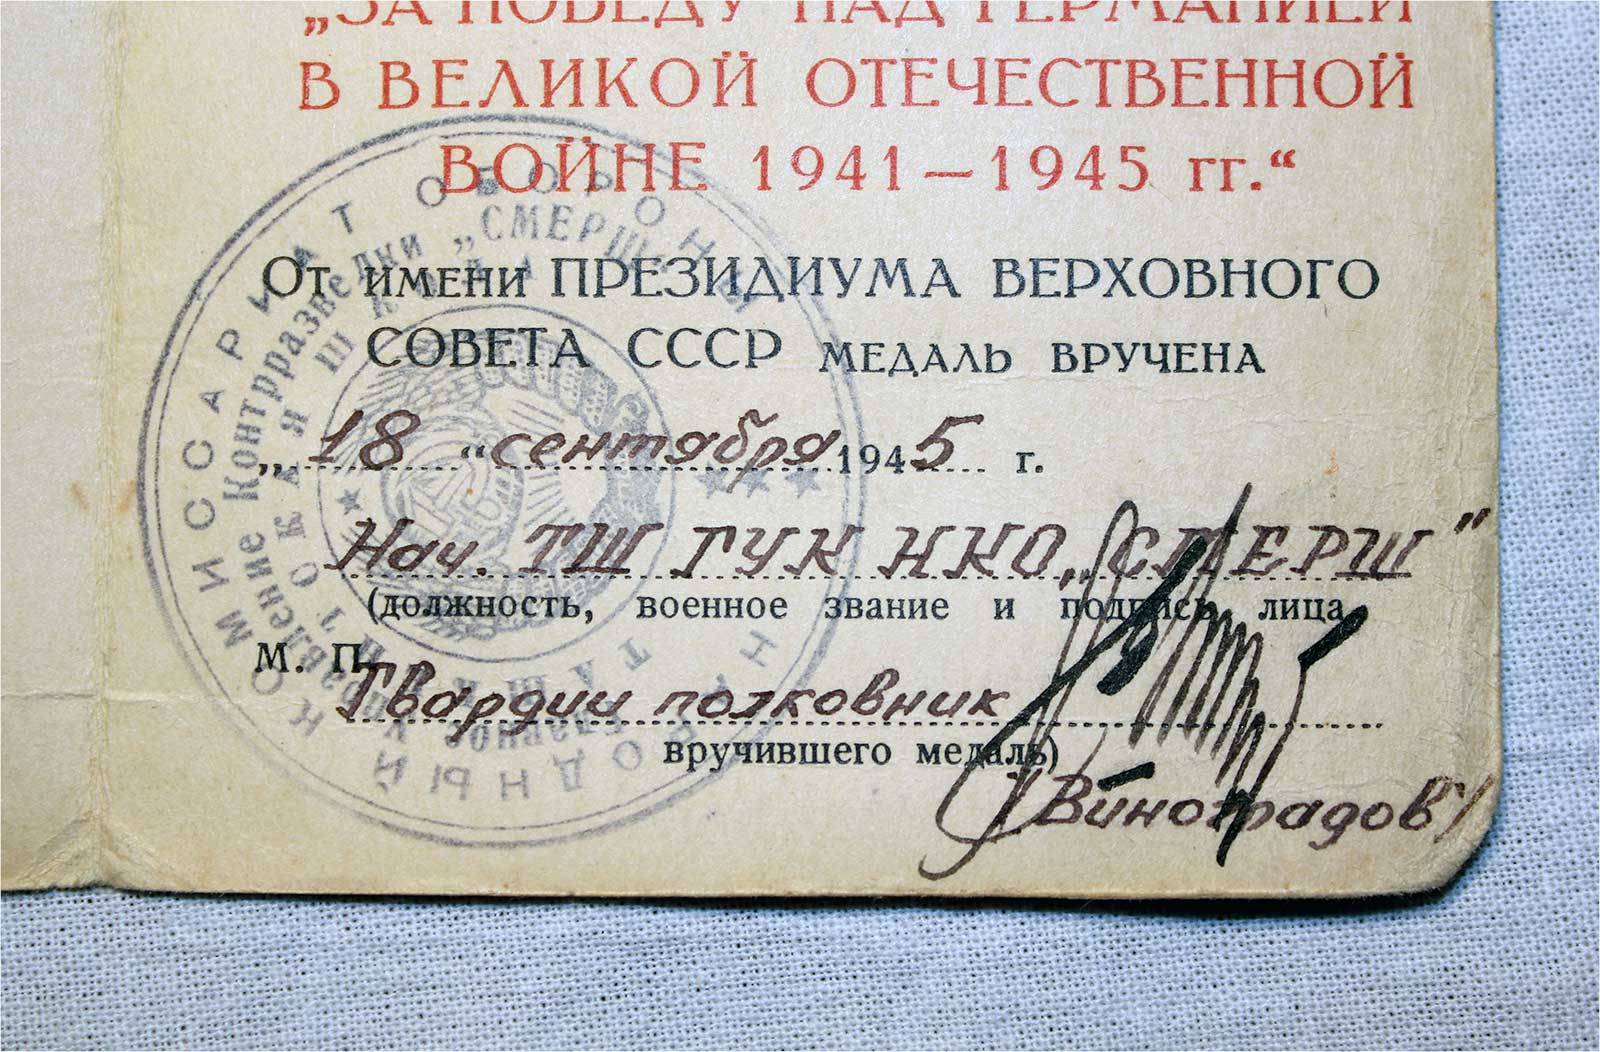 „ЗА ПОБЕДУ НАД ГЕРМАНИЕЙ
В ВЕЛИКОЙ ОТЕЧЕСТВЕННОЙ
ВОЙНЕ 1941—1945 гг.“
От имени ПРЕЗИДИУМА ВЕРХОВНОГО
СОВЕТА СССР МЕДАЛЬ ВРУЧЕНА
„18“ сентября 1945 г.
Нач. ТШ ГУК НКО „СМЕРШ"
(должность, военное звание и подпись лица,
М. П.
Гвардии полковник
вручившего медаль)
/Виноградов/
НАРОДНЫЙ КОМИССАРИАТ ОБОРОНЫ
Главное управление Контрразведки „СМЕРШ“
ТАШКЕНТСКАЯ ШКОЛА